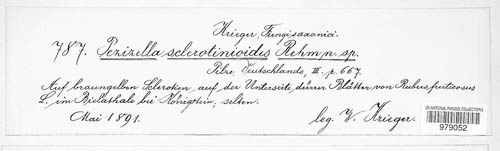 Krieger, Fungi saxonici.
787. Pezizella sclerotinioides Rehm n. sp.
Pilze Deutschlands, III. p. 667.
Auf braungelben Scleroten auf der Unterseite dürrer Blätter von Rubus fruticosus
L. im Bielathale bei Königstein; selten.
Mai 1891.
leg. W. Krieger.
US NATIONAL FUNGUS COLLECTIONS
979052